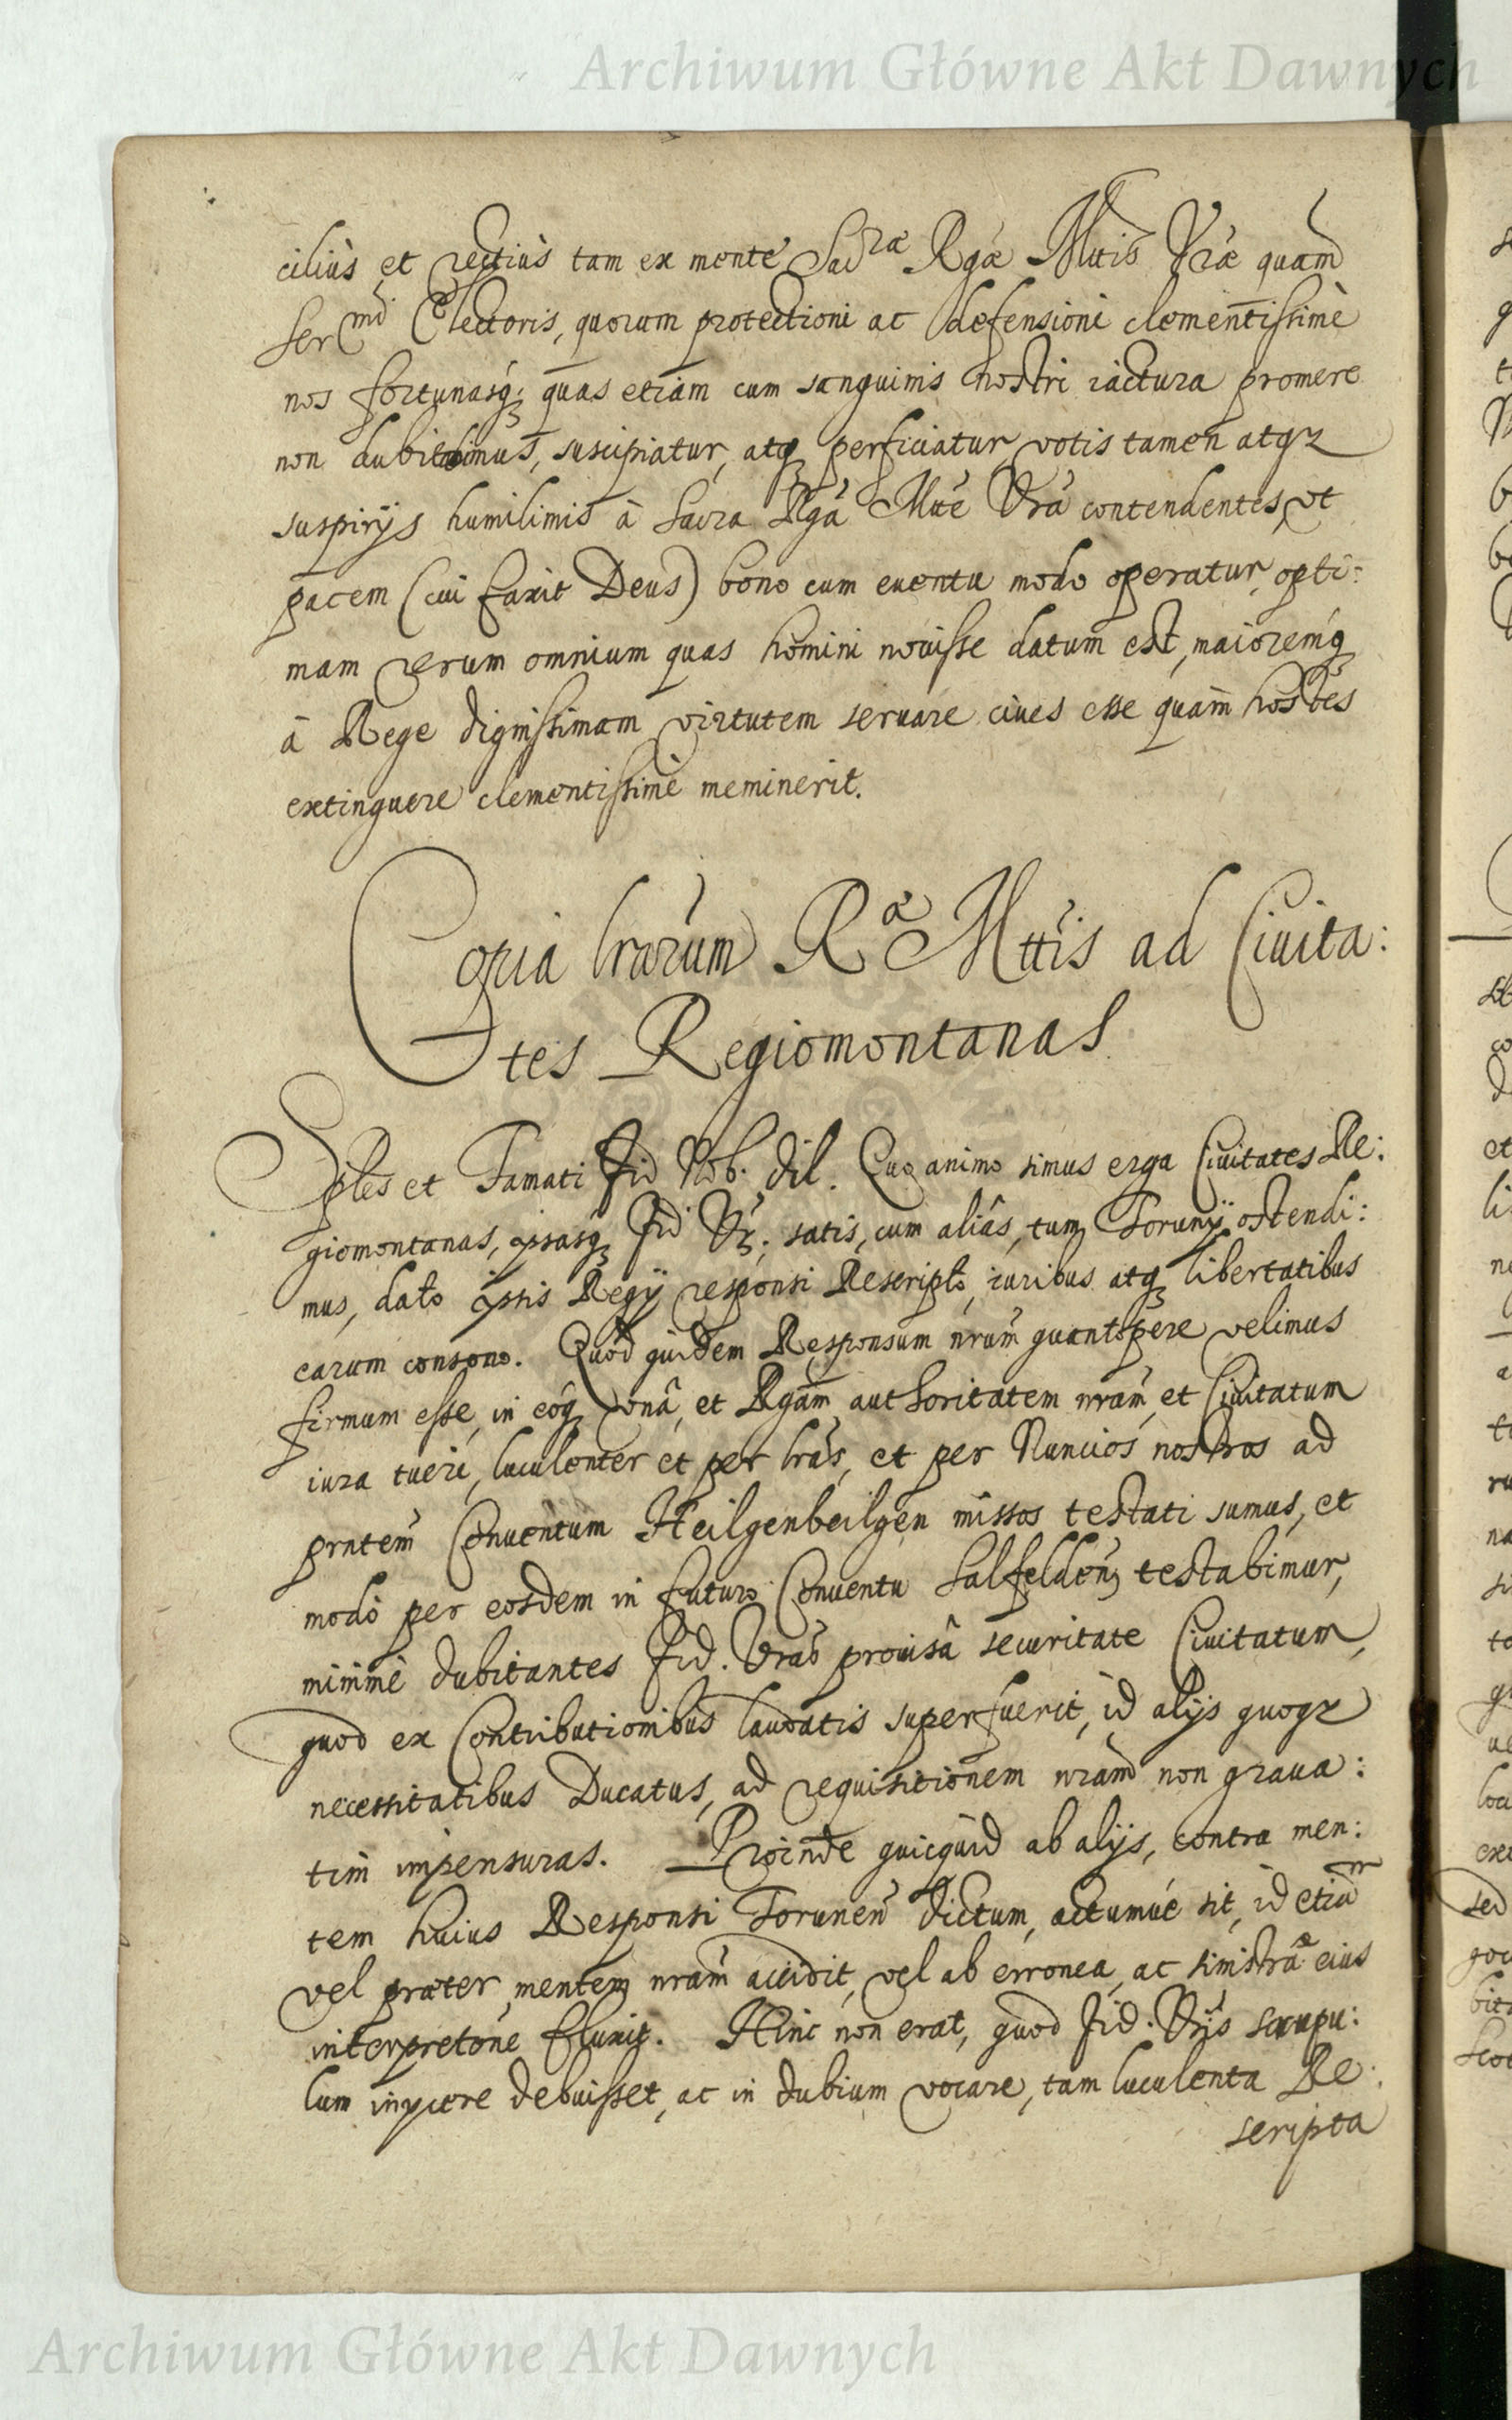 Archiwum Główne Akt Dawnych
ciliùs et rectiùs tam ex mente Sacrae Rgae Mttis Vrae quam
Sermi Electoris, quorum protectioni ac defensioni clementissimè
nos fortunasq; quas etiam cum sanguinis nostri iactura promere
non dubitabimus, suscipiatur, atq; perficiatur, votis tamen atqz
suspirijs humilimis à Sacra Rgâ Mtte Vrâ contendentes, vt
pacem (cui faxit Deus) bono cum euentu modo operatur, opti:
mam rerum omnium quas homini nouisse datum est, maioremq;
à Rege dignissimam virtutem seruare ciues esse quàm hostes
extinguere clementissimè meminerit.
Copia lrarum Rae Mttis ad Ciuita:
tes Regiomontanas
Sples et Famati Fid Nob. dil. Quo animo simus erga Ciuitates Re:
giomontanas, ipsasq; Fid Vr: satis, cum aliâs, tum Torunij ostendi:
mus, dato ipsis Regij responsi Rescripto, iuribus atq; libertatibus
earum consono. Quod quidem Responsum nrum quantopere velimus
firmum esse, in eoq; et Rgam authoritatem nram, et Ciuitatum
iura tueri, luculenter et per lras, et per Nuncios nostros ad
prntem Conuentum Heilgenbeilgen missos testati sumus, et
modò per eosdem in futuro Conuentu Salfelden; testabimur,
minimè dubitantes Fid. Vras prouisâ securitate Ciuitatum,
quod ex Contributionibus laudatis superfuerit, id alijs quoqz
necessitatibus Ducatus, ad requisitionem nram non graua:
tim impensuras. Proinde quicquid ab alijs, contra men:
tem huius Responsi Torunen dictum, actumue sit, id etiam
vel praeter mentem nram accidit, vel ab erronea, ac sinistra eius
interpretone fluxit. Hinc non erat, quod Fid. Vris scrupu:
lum inijcere debuisset, ac in dubium vocare, tam luculenta Re:
scripta
Archiwum Główne Akt Dawnych